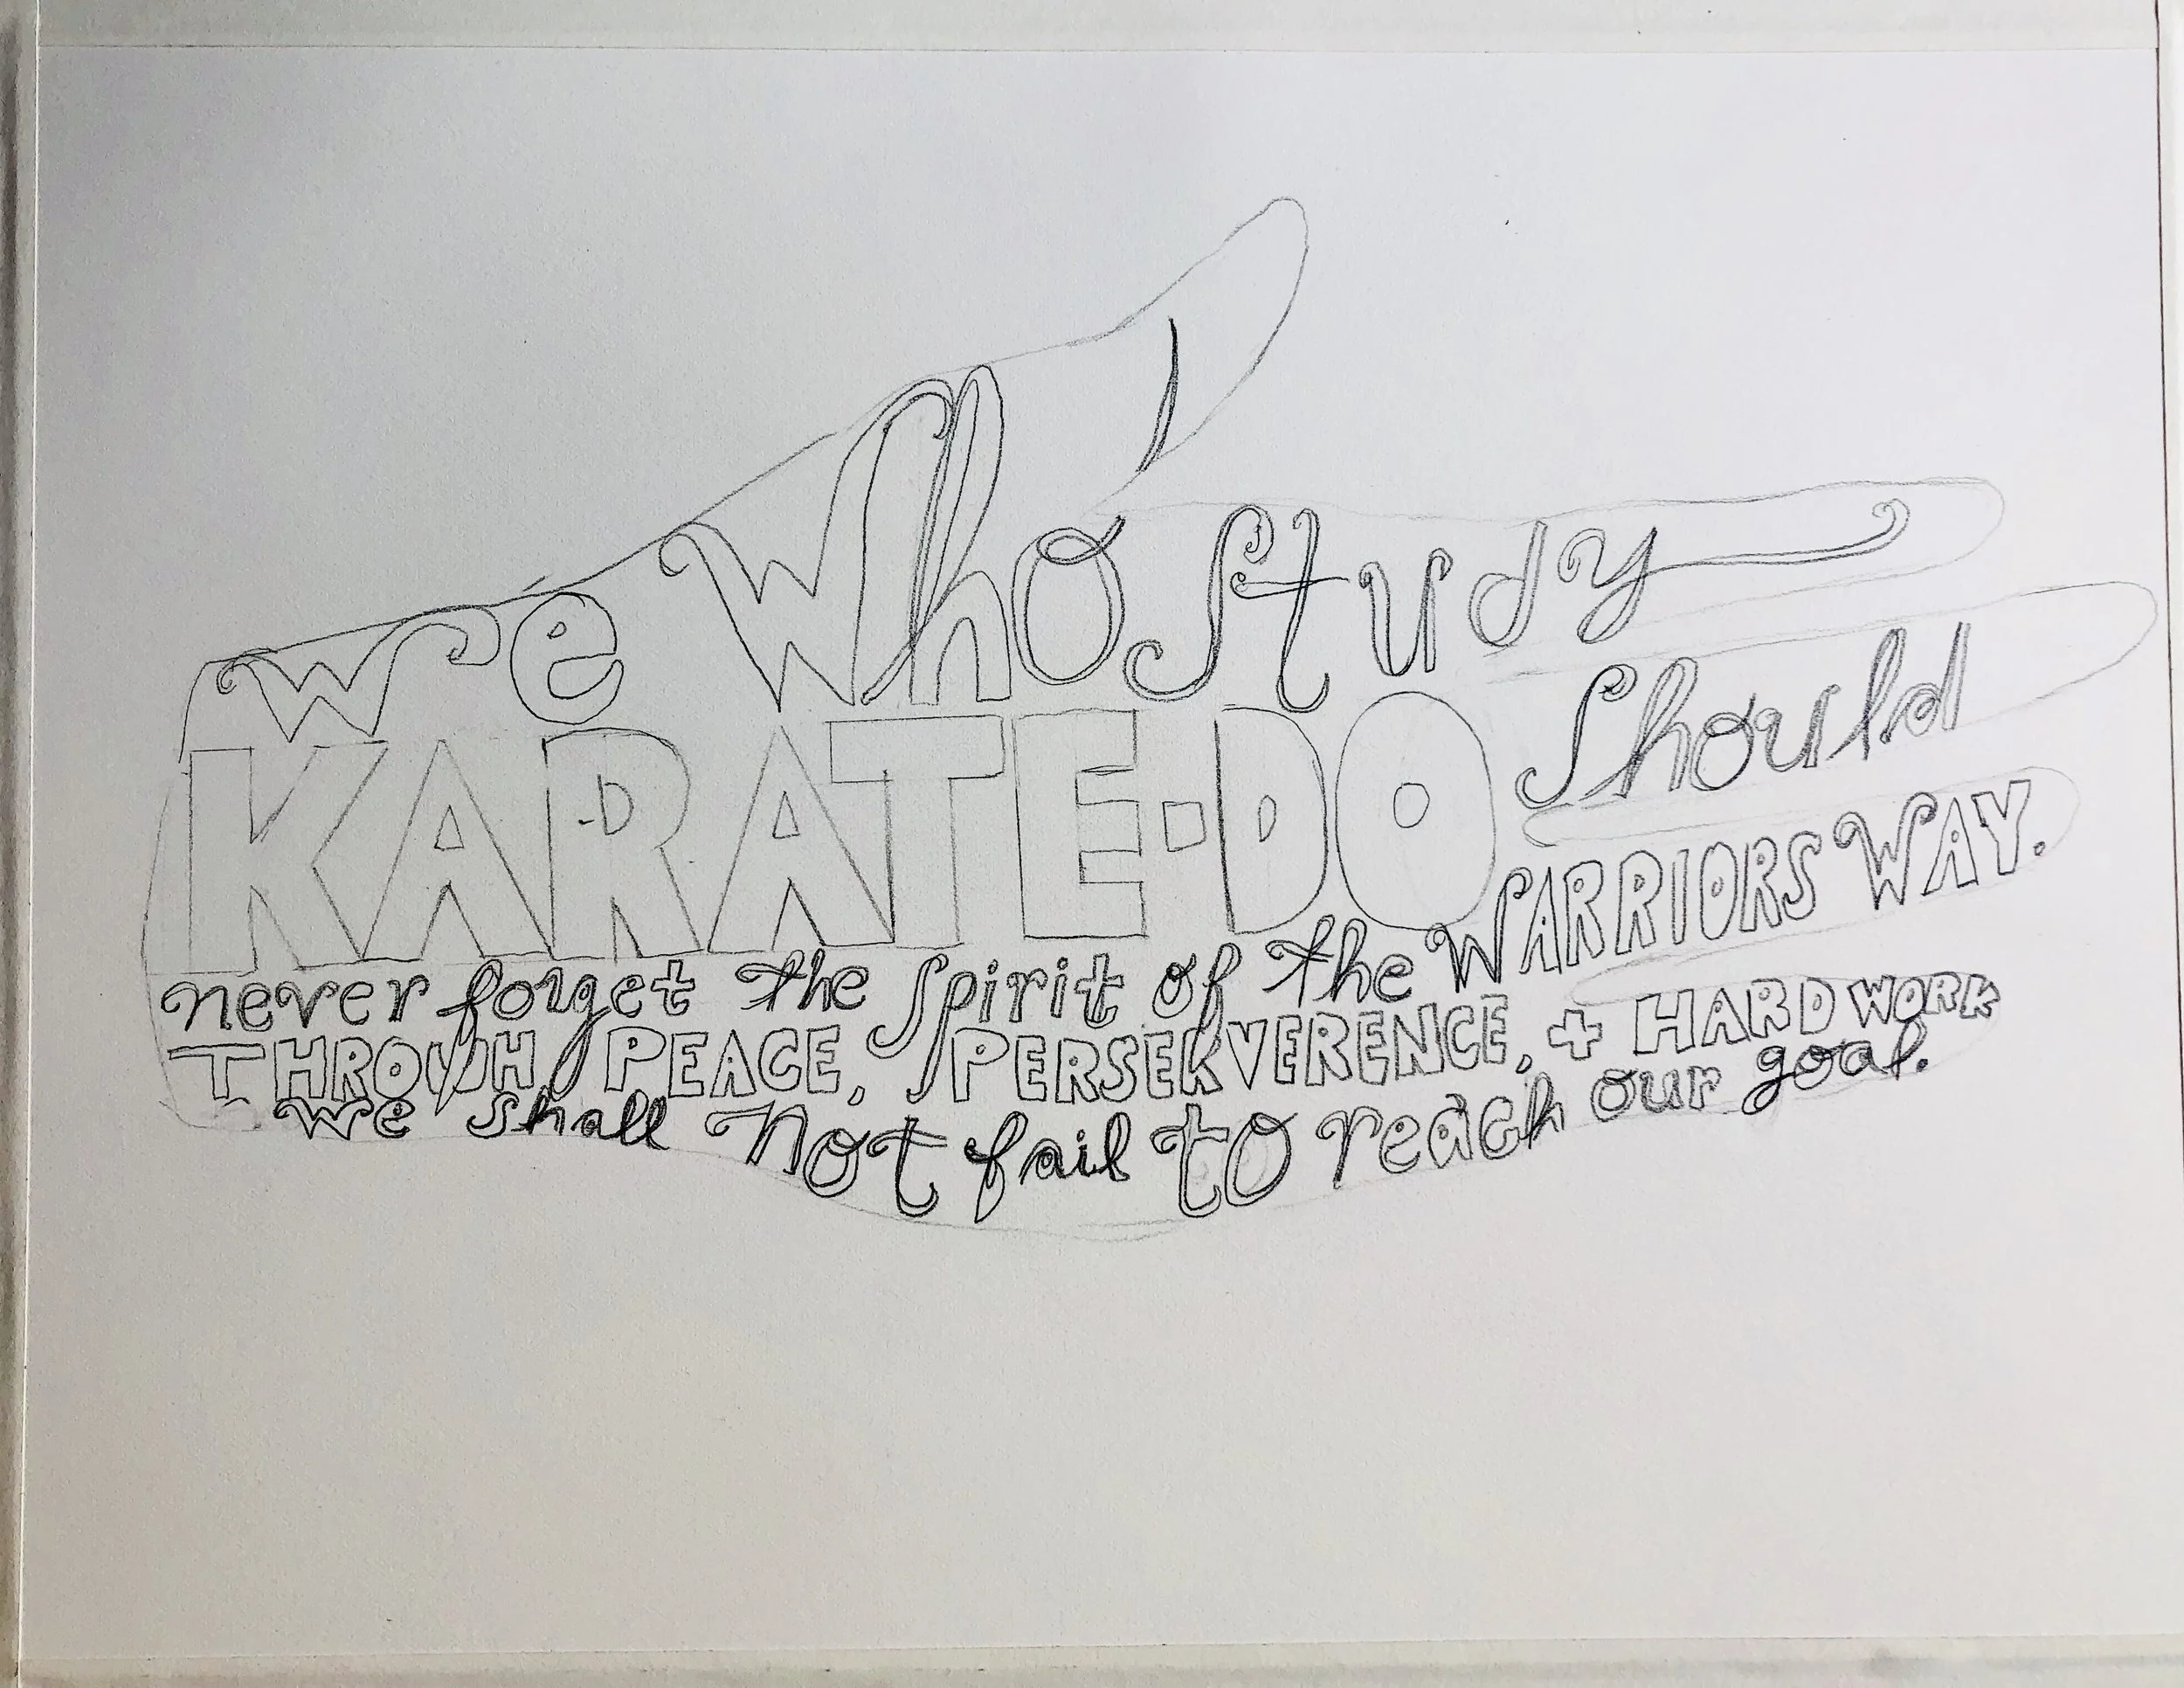 we Who study
KARATE-DO should
never forget the spirit of the WARRIORS WAY.
THROUGH PEACE, PERSERVERENCE, + HARD WORK
we shall not fail to reach our goal.